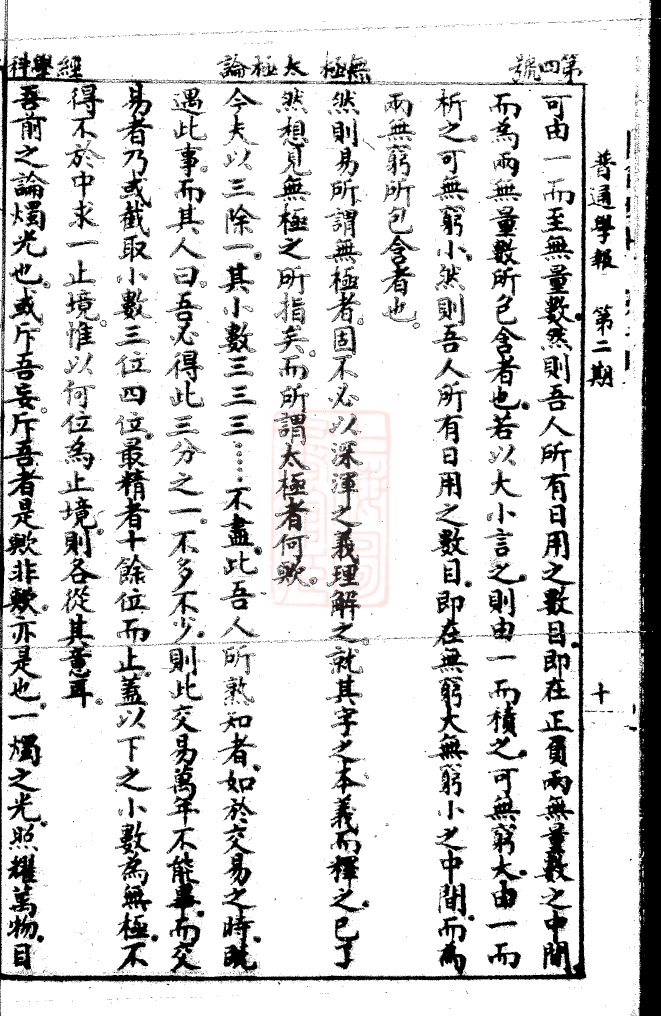 普通學報　第二期
十
第四號
無極太極論
經學科
可由一而至無量數。然則吾人所有日用之數目。即在正負兩無量數之中間。
而為兩無量數所包含者也。若以大小言之。則由一而積之。可無窮大。由一而
析之。可無窮小。然則吾人所有日用之數目。即在無窮大無窮小之中間。而為
兩無窮所包含者也。
然則易所謂無極者。固不必以深渾之義理解之。就其字之本義而釋之。已了
然想見無極之所指矣。而所謂太極者何歟。
今夫以三除一。其小數三三三……不盡。此吾人所熟知者。如於交易之時。既
遇此事。而其人曰。吾必得此三分之一。不多不少。則此交易萬年不能畢。而交
易者乃或截取小數三位四位。最精者十餘位而止。蓋以下之小數為無極。不
得不於中求一止境。惟以何位為止境。則各從其意耳。
吾前之論燭光也。或斥吾妄。斥吾者是歟非歟。亦是也。一燭之光。照耀萬物。目